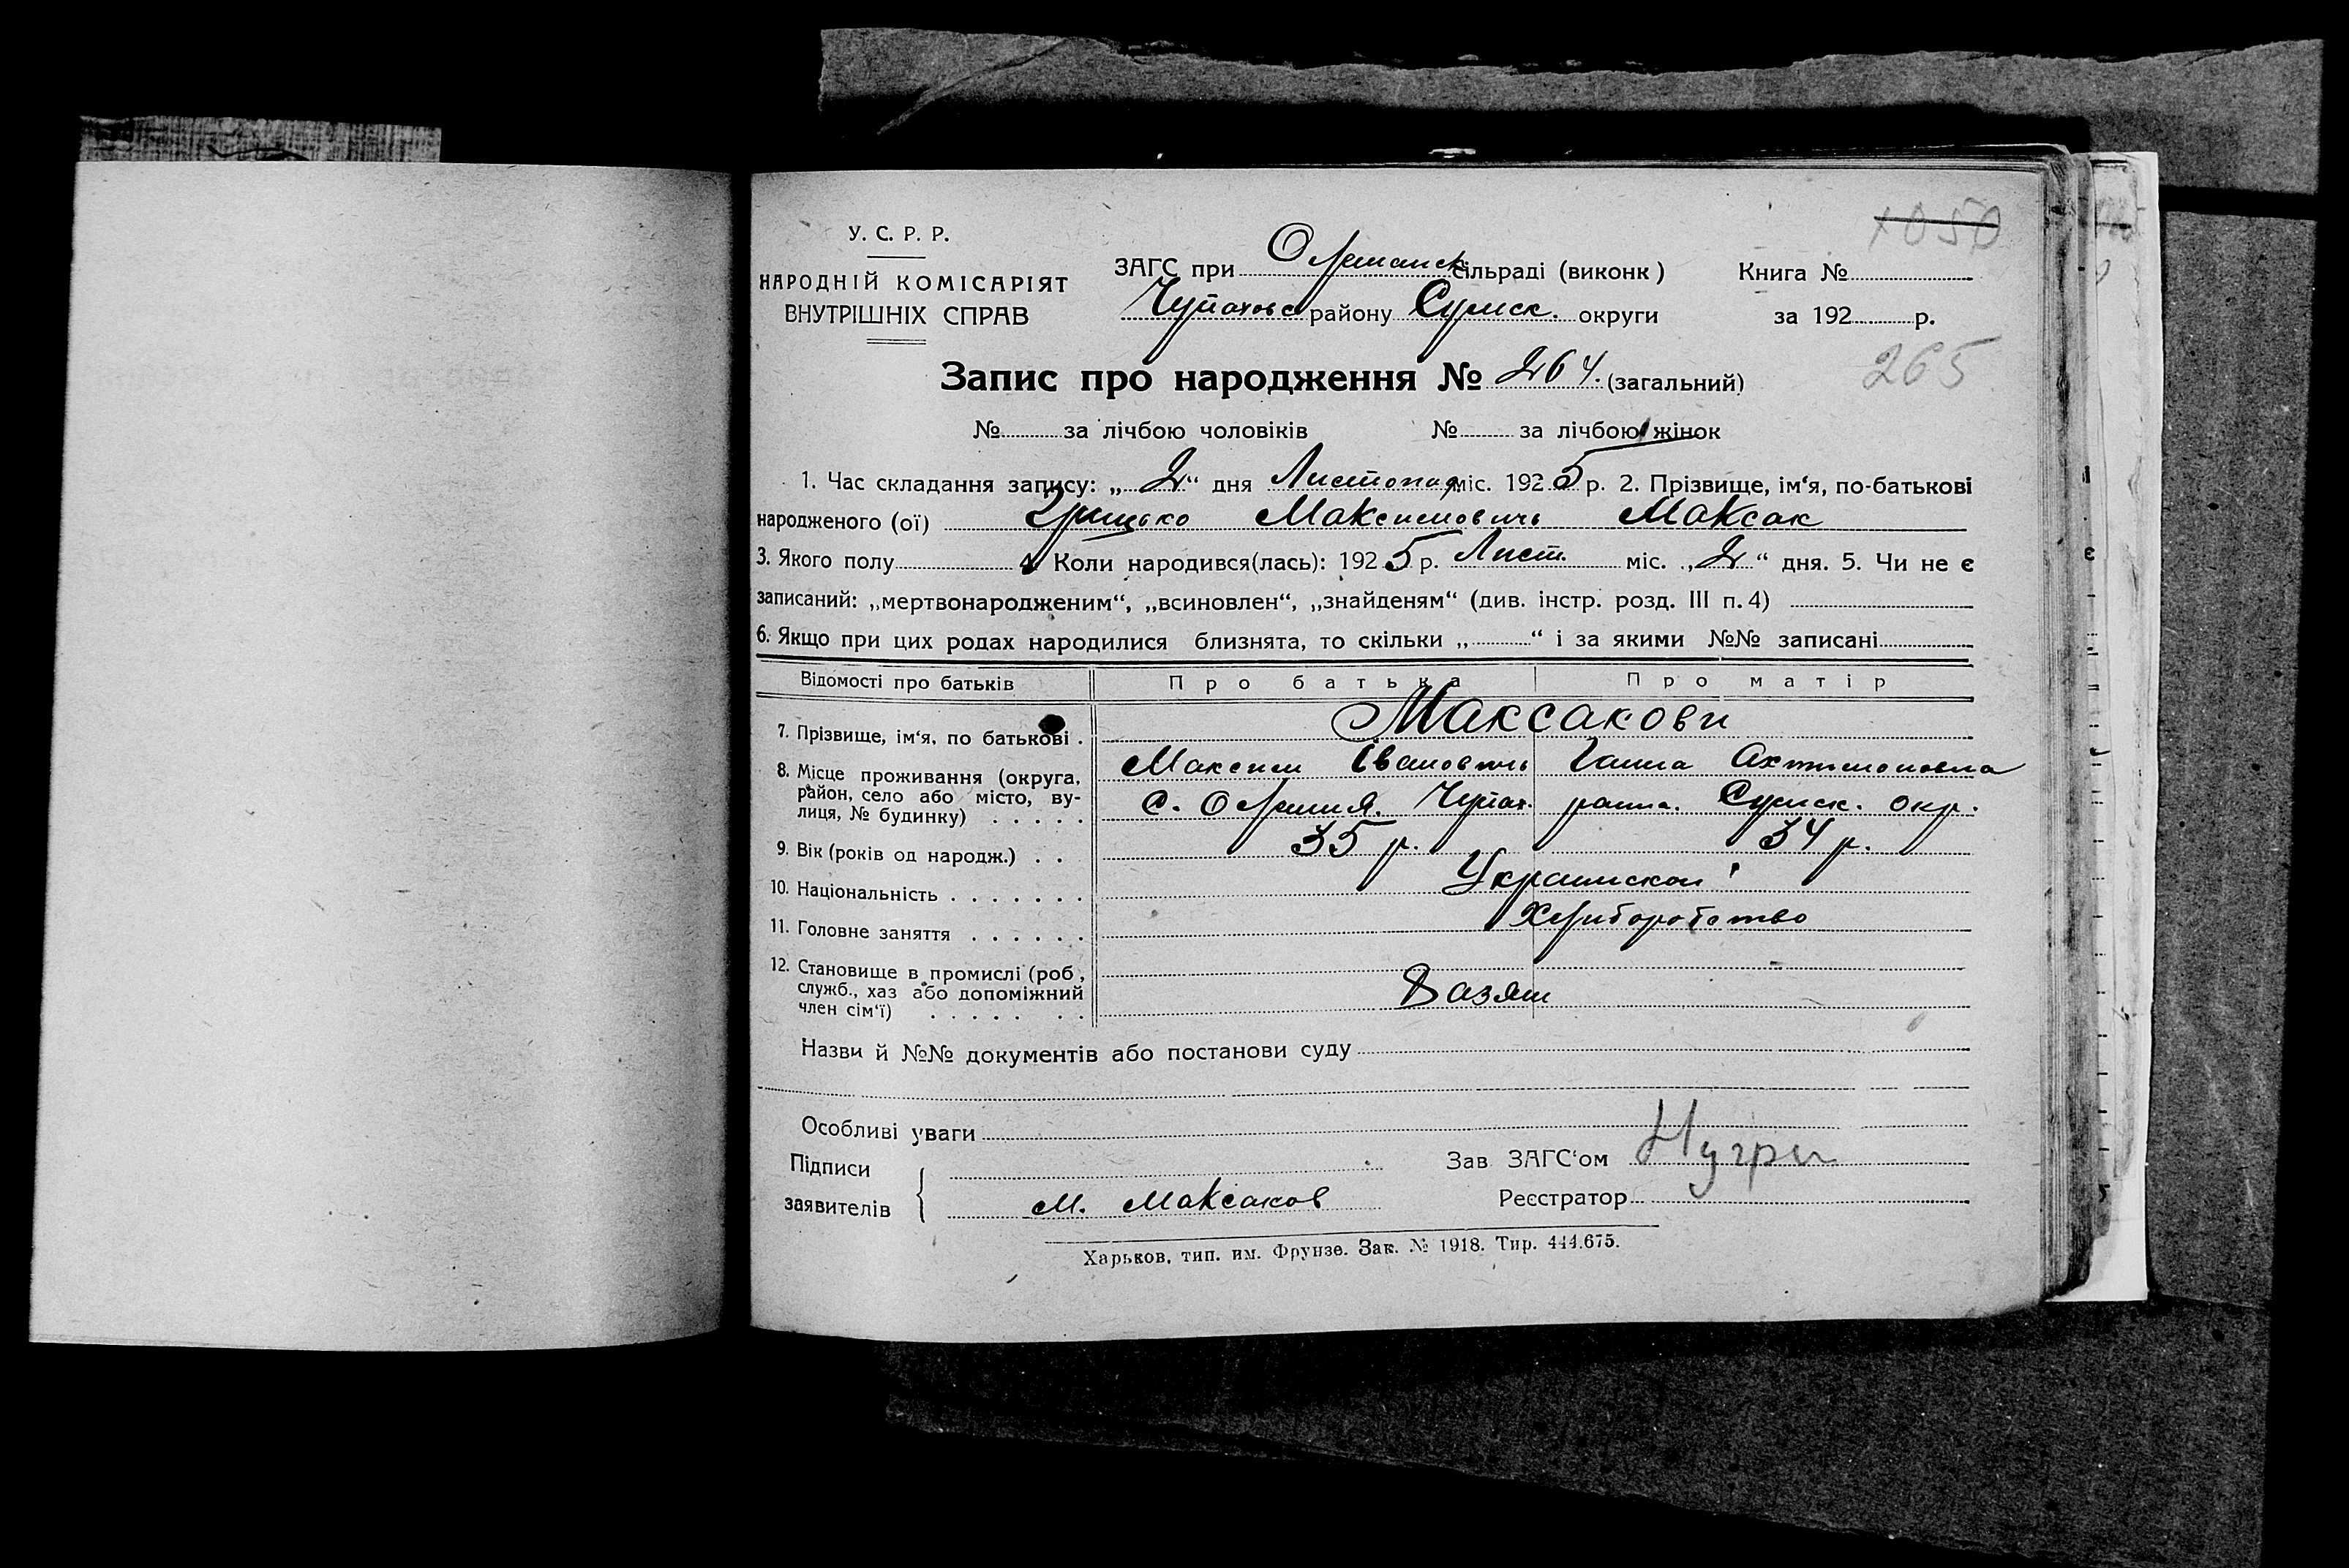 1050
У. С. Р. Р.
НАРОДНІЙ КОМІСАРІЯТ
ВНУТРІШНІХ СПРАВ
ЗАГС при Олешанск сільраді (виконк) Книга №
Чупаховс району Сумск. округи за 192 р.
Запис про народження № 264. (загальний) 265
№ за лічбою чоловіків № за лічбою жінок
1. Час складання запису: „2“ дня Листопад міс. 1925 р. 2. Прізвище, ім‘я, по-батькові
народженого (ої) Грицько Максимовичь Максак
3. Якого полу 4. Коли народився(лась): 1925 р. Лист. міс. „2“ дня. 5. Чи не є
записаний: „мертвонародженим“, „всиновлен“, „знайденям“ (див. інстр. розд. III п. 4)
6. Якщо при цих родах народилися близнята, то скільки „ “ і за якими №№ записані
Відомості про батьків Про батька Про матір
7. Прізвище, ім‘я, по батькові . Максакови
Максим Іванович Ганна
8. Місце проживання (округа, район, село або місто, вулиця, № будинку) . . . . . с. Олешня. Чупах. Сумск. окр.
9. Вік (років од народж.) . . 35 р. 34 р.
10. Національність . . . . . . .
11. Головне заняття . . . . . . Хлиборобство
12. Становище в промислі (роб, служб., хаз або допоміжний член сім‘ї) . . . . . . .
Назви й №№ документів або постанови суду
Особливі уваги
Підписи Зав ЗАГС‘ом
заявителів М. Максаков Реєстратор
Харьков, тип. им. Фрунзе. Зак. № 1918. Тир. 444.675.